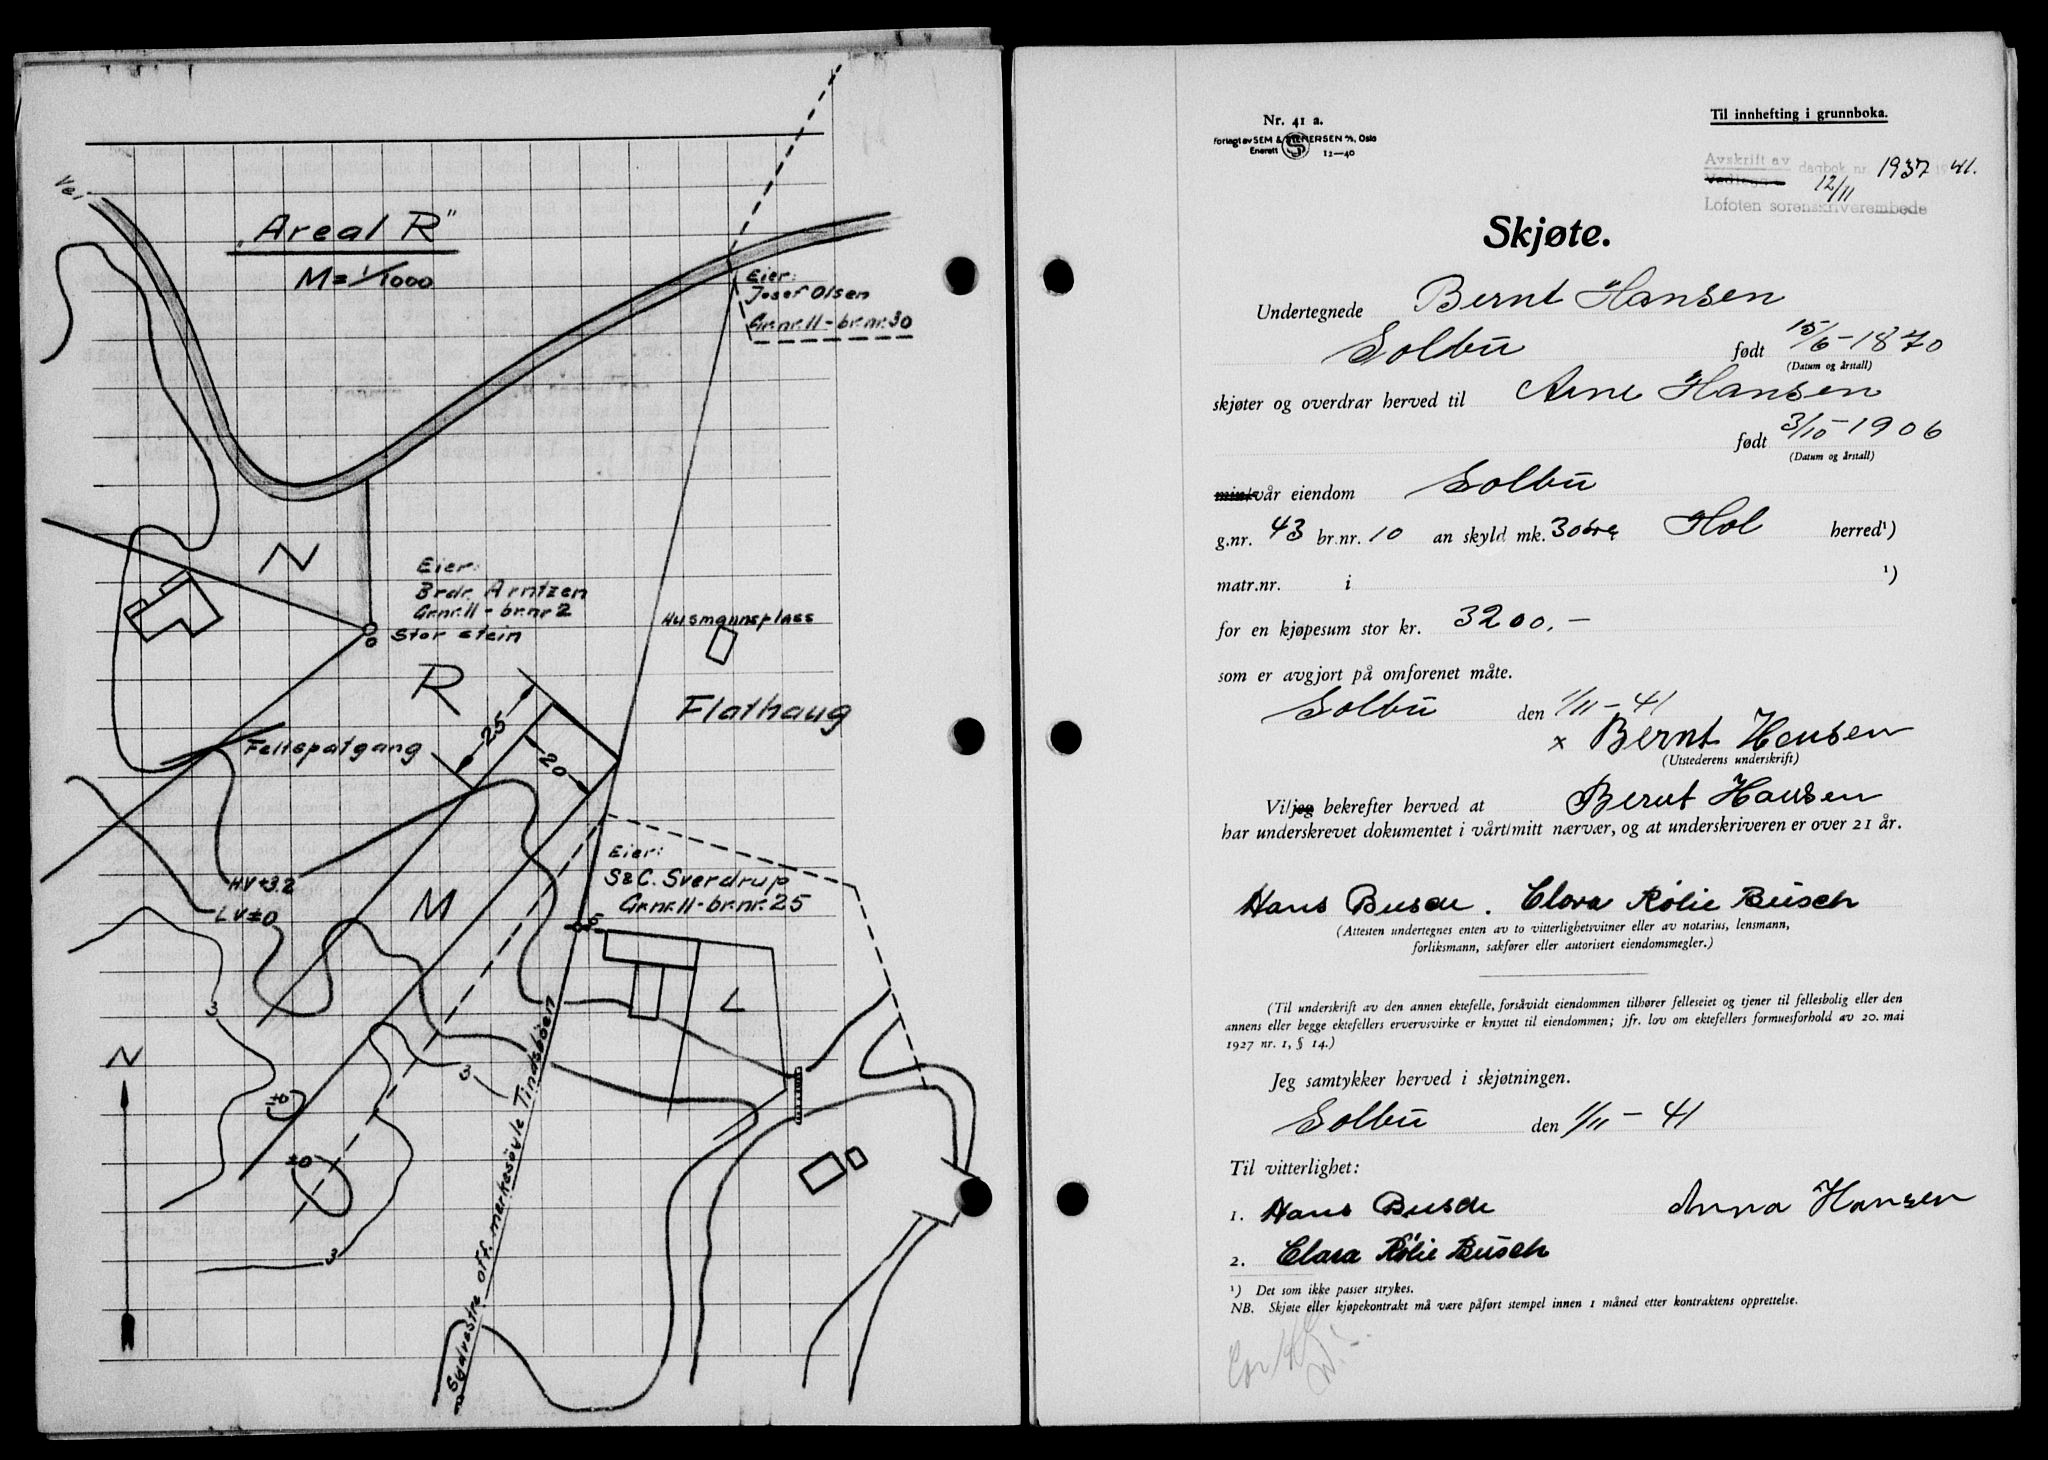 Vei
„Areal R"
M = 1/1000
Eier:
Josef Olsen
Gr.nr. 11 - br.nr. 30
N
Eier:
Brdr. Arntzen
Gr.nr. 11 - br.nr 2
Stor stein
Husmannsplass
R
Flathaug
25
20
Feltspatgang
Eier:
S&C. Sverdrup
Gr.nr. 11 - br.nr. 25
HV+3.2
LV±0
M
L
3
N
3
±0
±0
3
Sydvestre off. merkesöyle Tindsböen
Nr. 41 a.
Forlagt av SEM & STENERSEN A/S, Oslo
Enerett 12—40
Til innhefting i grunnboka.
Avskrift av
Vedlegg dagbok nr. 1937 19 41.
12/11
Lofoten sorenskriverembede
Skjøte.
Undertegnede Bernt Hansen
Solbu født 15/6-1870
(Datum og årstall)
skjøter og overdrar herved til Arne Hansen
født 3/10-1906
(Datum og årstall)
min/vår eiendom Solbu
g.nr. 43 br.nr. 10 an skyld mk. 30 øre Hol herred¹)
matr.nr. i ¹)
for en kjøpesum stor kr. 3200.-
som er avgjort på omforenet måte.
Solbu den 1/11-41
x Bernt Hansen
(Utstederens underskrift)
Vi/jeg bekrefter herved at Bernt Hansen
har underskrevet dokumentet i vårt/mitt nærvær, og at underskriveren er over 21 år.
Hans Busch. Clara Rølie Busch
(Attesten undertegnes enten av to vitterlighetsvitner eller av notarius, lensmann,
forliksmann, sakfører eller autorisert eiendomsmegler.)
(Til underskrift av den annen ektefelle, forsåvidt eiendommen tilhører felleseiet og tjener til fellesbolig eller den
annens eller begge ektefellers ervervsvirke er knyttet til eiendommen; jfr. lov om ektefellers formuesforhold av 20. mai
1927 nr. 1, § 14.)
Jeg samtykker herved i skjøtningen.
Solbu den 1/11-41
Til vitterlighet:
1. Hans Busch Anna Hansen
2. Clara Rølie Busch
¹) Det som ikke passer strykes.
NB. Skjøte eller kjøpekontrakt må være påført stempel innen 1 måned etter kontraktens opprettelse.